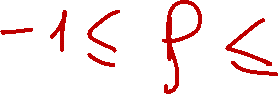 -1 ≤ ρ ≤